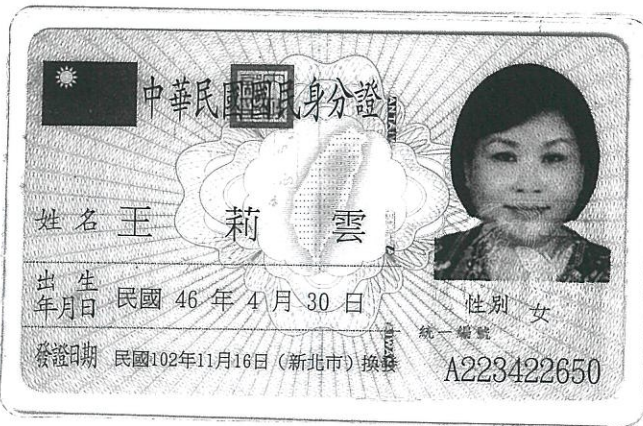 中華民國國民身分證
姓名 王莉雲
出生年月日 民國 46 年 4 月 30 日
性別 女
統一編號
發證日期 民國102年11月16日（新北市）換發
A223422650